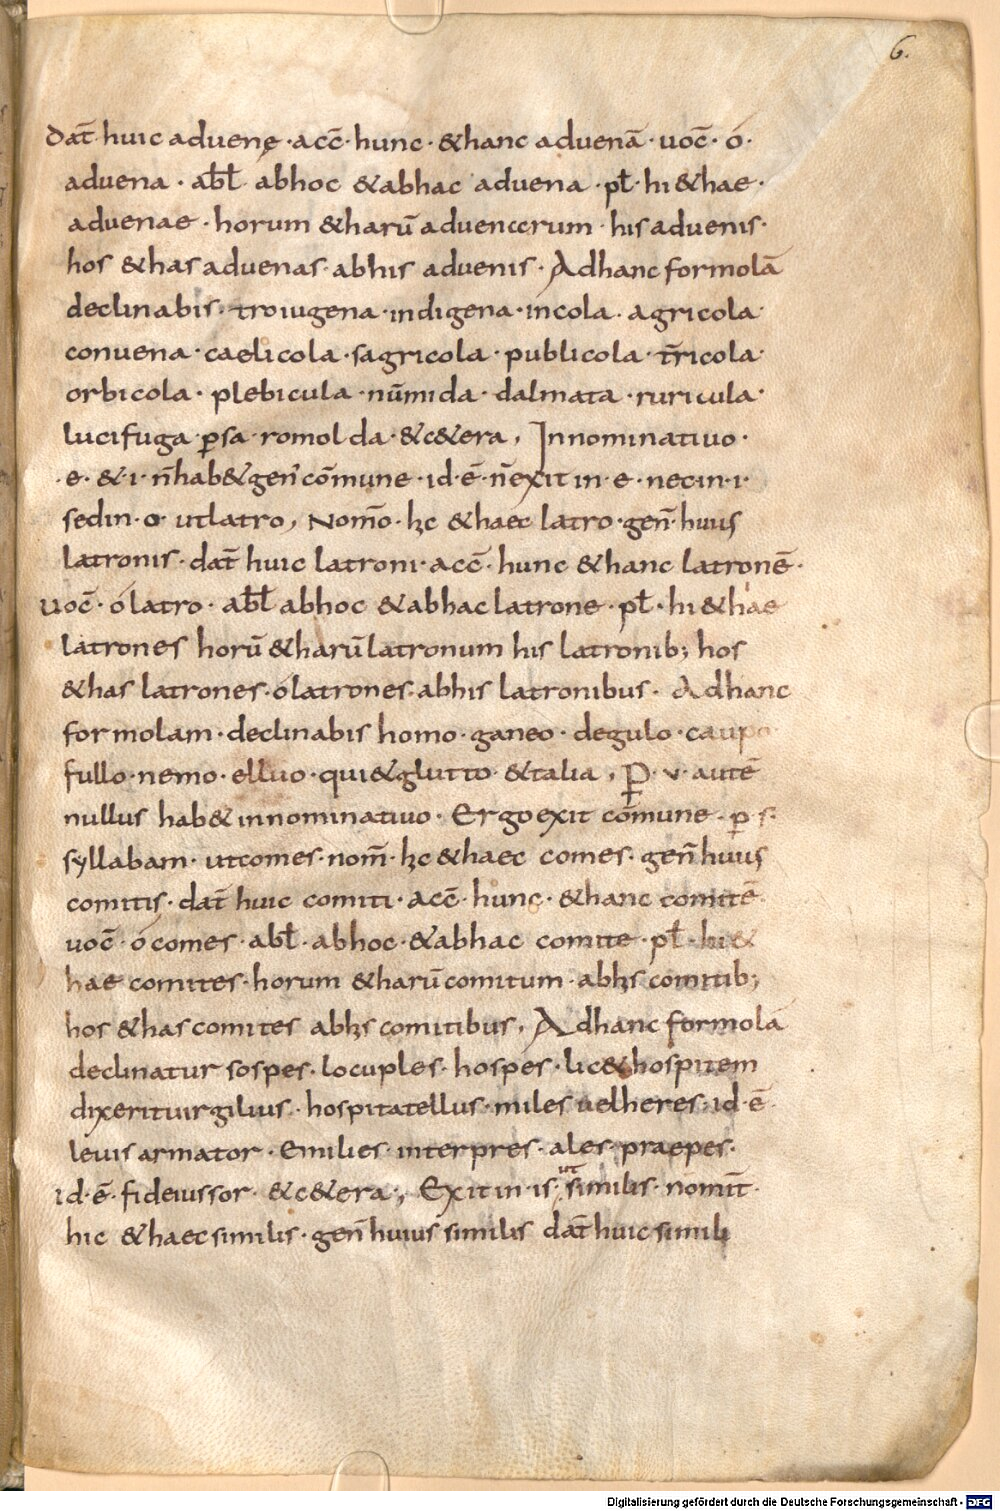 6.
dat̄ huic aduenę · acc̄ · hunc · & hanc aduenā · uoc̄ · ó ·
aduena · abl̄ · abhoc & abhac aduena · pl̄ · hi & hae ·
aduenae · horum & harū aduenarum · his aduenis ·
hos & has aduenas · abhis aduenis · Adhanc formolā
declinabis · troiugena · indigena · incola · agricola ·
conuena · caelicola · sagricola · publicola · tr̄ricola ·
orbicola · plebicula · nūmida · dalmata · ruricula ·
lucifuga · ꝑsa · romolda · & c&era, Innominatiuo ·
· e · & · i · n̄ hab& gen̄ cōmune · id · ē · n̄ exit in · e · nec in · i ·
sed in · o · ut latro, Nomō · hc & haec latro · gen̄ · huius
latronis · dat̄ huic latroni · acc̄ · hunc & hanc latronē ·
uoc̄ · ó latro · abl̄ abhoc & abhac latrone · pl̄ · hi & hae
latrones horū & harū latronum his latronib; hos
& has latrones · ó latrones · abhis latronibus · Adhanc
formolam · declinabis homo · ganeo · degulo · caupo
fullo · nemo · elluo · qui & glutto · & talia, P · v · autē
nullus hab& innominatiuo · Ergo exit cōmune · ꝑ s ·
syllabam · ut comes · nom̄ · hc & haec comes · gen̄ huius
comitis · dat̄ huic comiti · acc̄ · hunc · & hanc comitē ·
uoc̄ · ó comes · abl̄ · abhoc · & abhac comite · pl̄ · hi &
hae comites · horum & harū comitum · abhis comitib;
hos & has comites abhis comitibus, Adhanc formolā
declinatur sospes · locuples · hospes · lic& hospitem
dixerit uirgilius · hospitatellus · miles uelheres · id · ē ·
leuis armator · Emilies · interpres · ales · praepes ·
id · ē · fideiussor · & c&era, Exit in · is ut similis · nomīt ·
hic & haec similis · gen̄ huius similis dat̄ huic simili
Digitalisierung gefördert durch die Deutsche Forschungsgemeinschaft - DFG